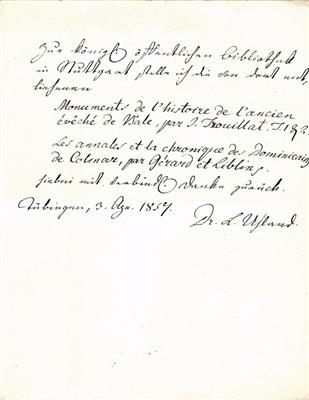 Zur königl. öffentlichen Bibliothek
in Stuttgart stelle ich die von dort ent-
liehenen
Monuments de l'histoire de l'ancien
évêché de Bâle, par J. Trouillat. T. 1 & 2.
Les annales et la chronique des Dominicains
de Colmar, par Gérard et Liblin,
hiebei mit verbindl. Danke zurück.
Tübingen, 3. Apr. 1857.
Dr. L. Uhland.